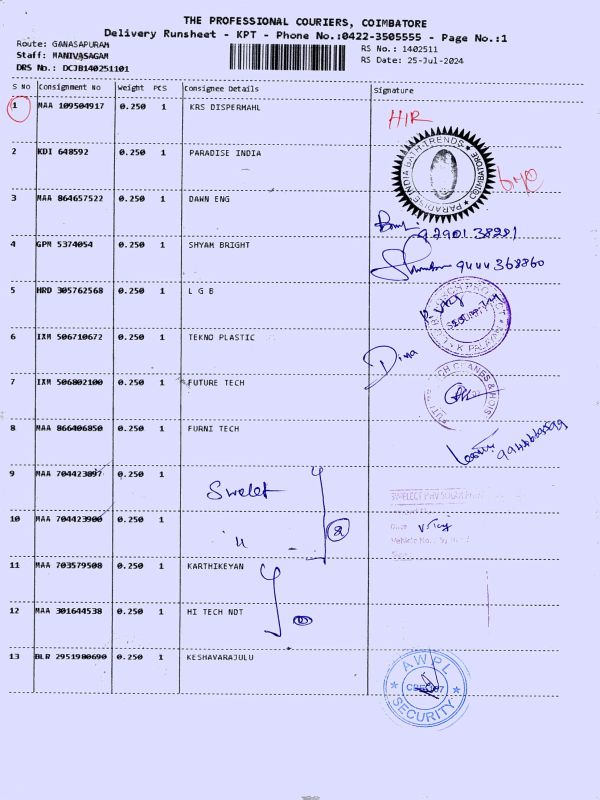 THE PROFESSIONAL COURIERS, COIMBATORE
Delivery Runsheet - KPT - Phone No.:0422-3505555 - Page No.:1
Route: GANASAPURAM
Staff: MANIVASAGAM
DRS No.: DCJB140251101
RS No.: 1402511
RS Date: 25-Jul-2024
S No Consignment No Weight PCS Consignee Details Signature
1 MAA 109504917 0.250 1 KRS DISPERMAHL
HIR
2 KDI 648592 0.250 1 PARADISE INDIA
PARADISE INDIA BATH TRENDS COIMBATORE
3 MAA 864657522 0.250 1 DAWN ENG
9290138281
4 GPM 5374054 0.250 1 SHYAM BRIGHT
9444368860
5 HRD 305762568 0.250 1 L G B
SECURITY
K. PALAYAM
6 IXM 506710672 0.250 1 TEKNO PLASTIC
7 IXM 506802100 0.250 1 FUTURE TECH
TECH CRANES & HOIS
8 MAA 866406850 0.250 1 FURNI TECH
9 MAA 704423897 0.250 1
Swelet
10 MAA 704423900 0.250 1
11
2
Vehicle No.
11 MAA 703579508 0.250 1 KARTHIKEYAN
12 MAA 301644538 0.250 1 HI TECH NDT
13 BLR 2951980690 0.250 1 KESHAVARAJULU
AWPL
SECURITY